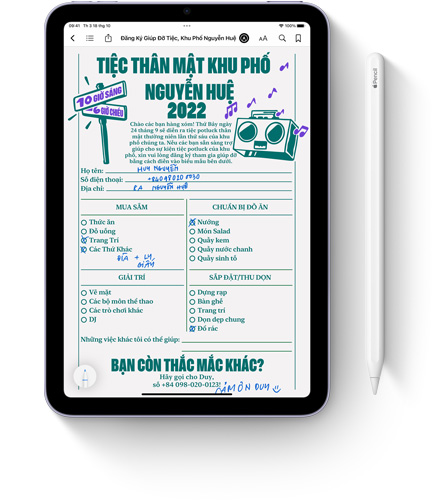 09:41 Th 3 18 thg 10
100%
Đăng Ký Giúp Đỡ Tiệc, Khu Phố Nguyễn Huệ
AA
TIỆC THÂN MẬT KHU PHỐ
NGUYỄN HUỆ
2022
10 GIỜ SÁNG
6 GIỜ CHIỀU
Chào các bạn hàng xóm! Thứ Bảy ngày
24 tháng 9 sẽ diễn ra tiệc potluck thân
mật thường niên lần thứ sáu của khu
phố chúng ta. Nếu các bạn sẵn sàng trợ
giúp cho sự kiện tiệc potluck của khu
phố, xin vui lòng đăng ký tham gia giúp đỡ
bằng cách điền vào biểu mẫu bên dưới.
Họ tên: HUY NGUYỄN
Số điện thoại: +84098020 0430
Địa chỉ: 8A NGUYỄN HUỆ
MUA SẮM
Thức ăn
Đồ uống
Trang Trí
Các Thứ Khác
ĐĨA + LY
GIẤY
CHUẨN BỊ ĐỒ ĂN
Nướng
Món Salad
Quầy kem
Quầy nước chanh
Quầy sinh tố
GIẢI TRÍ
Vẽ mặt
Các bộ môn thể thao
Các trò chơi khác
DJ
SẮP ĐẶT/THU DỌN
Dựng rạp
Bàn ghế
Trang trí
Dọn dẹp chung
Đổ rác
Những việc khác tôi có thể giúp:
BẠN CÒN THẮC MẮC KHÁC?
Hãy gọi cho Duy,
số +84 098-020-0123!
CẢM ƠN DUY
Pencil